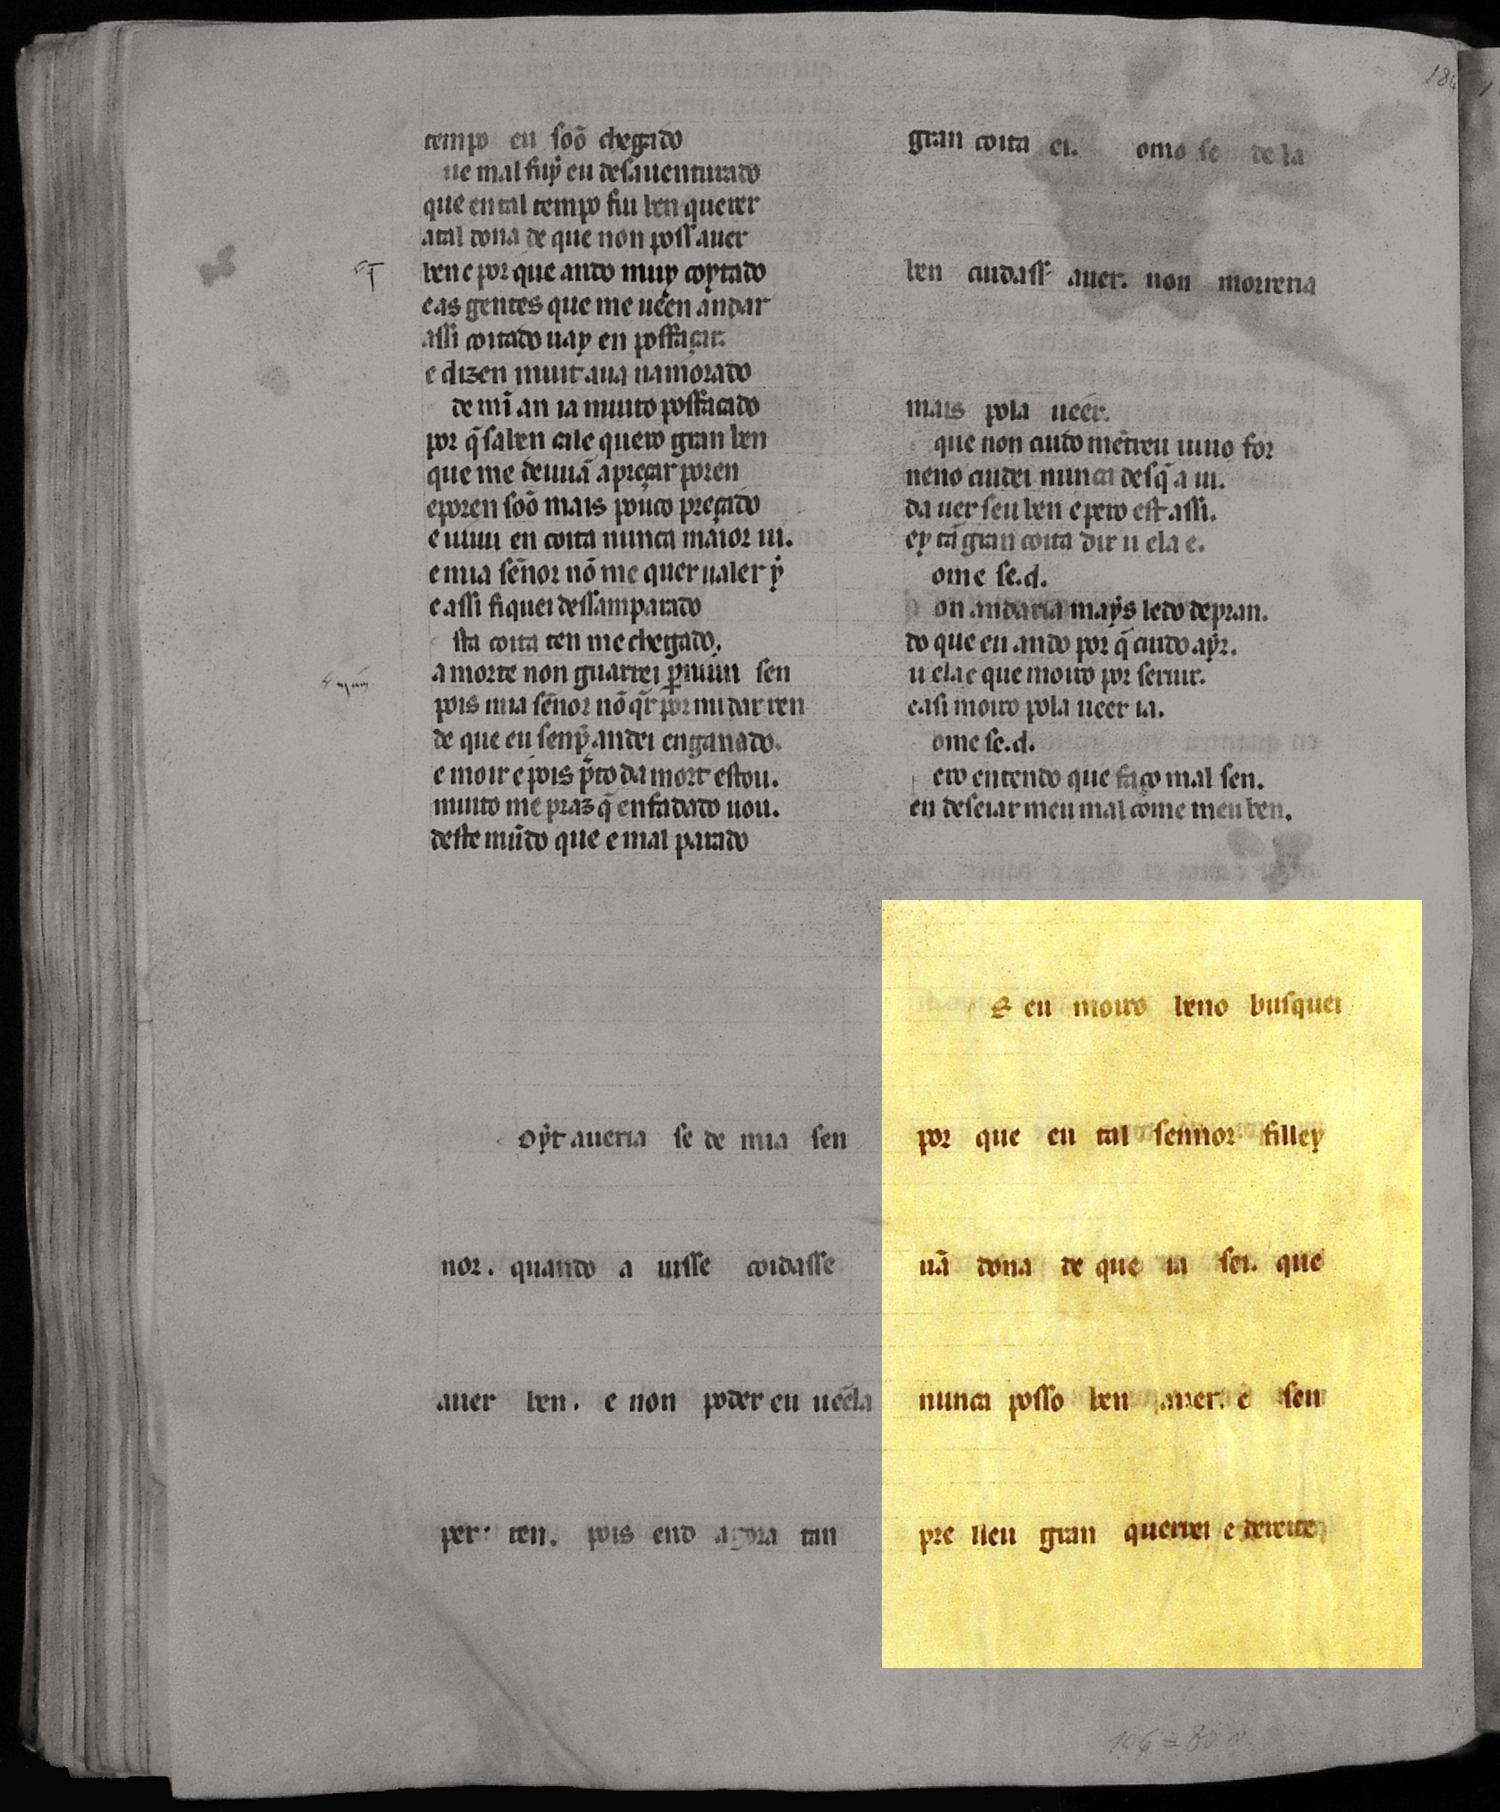 tempo eu soõ chegado
ue mal fuẏ eu desauenturado
que en tal tempo fui ben querer
atal dona de que non poss auer
ben e por que ando muẏ coẏtado
e as gentes que me ueen andar
assi coitado uaẏ en possaçar.
e dizen muit aua namorado
de mĩ an ia muito possaçado
por q̃ saben ca lle quero gran ben
que me deuiiã a preçar poren
e poren soõ mais pouco preçado
e uiuu en coita nunca maior ui.
e mia sẽnor nõ me quer ualer ẏ
e assi fiquei dessamparado
sta coita ten me chegado.
a morte non guarrei per niun sen
pois mia sẽnor nõ q̃r por mi dar ren
de que eu senp̃ andei enganado.
e moir e pois p̃to da mort estou.
muito me praz q̃ enfadado uou.
deste mũdo que e mal parado
oẏt aueria se de mia sen
nor. quando a uisse coidasse
auer ben. e non poder eu ueela
per ren. pois end agora tan
gran coita ei. ome se de la
ben cuidass auer. non morreria
mais pola ueer.
que non cuido mẽtreu uiuo for
neno cuidei nunca desq̃ a ui.
da uer seu ben e pero est assi.
eẏ tã gran coita dir u ela e.
ome se.d.
on andaria maẏs ledo depran.
do que eu ando por q̃ cuido aẏr.
u ela e que moiro por seruir.
e asi moiro pola ueer ia.
ome se.d.
ero entendo que faço mal sen.
en deseiar meu mal come meu ben.
S eu moiro beno busquei
por que eu tal sennor filleẏ
uã dona de que ia sei. que
nunca posso ben auer. e sen
pre lleu gran querrei e
106 = 80